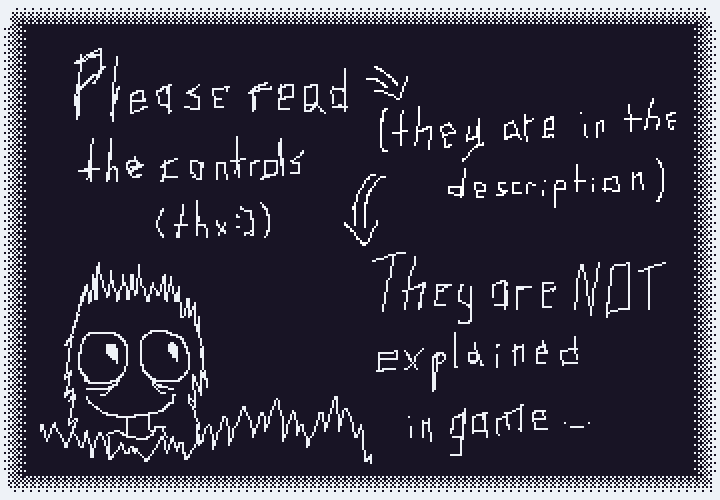 Please read
the controls
(thx:))
(they are in the
description)
They are NOT
explained
in game...